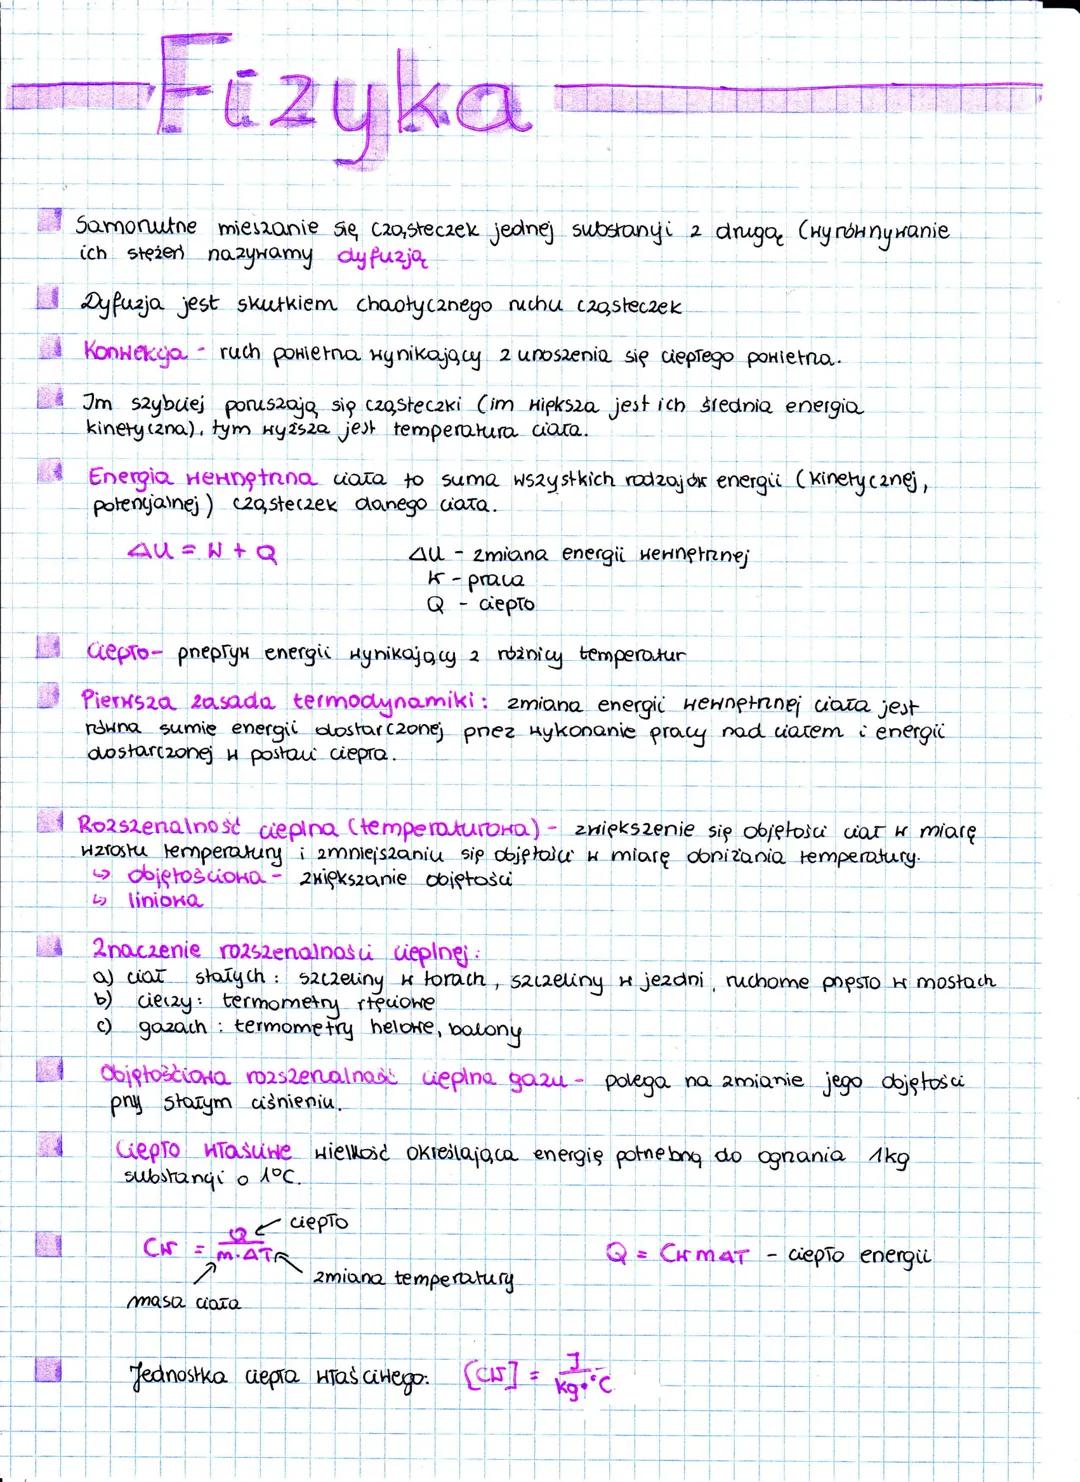 Fizyka
Samorzutne mieszanie się cząsteczek jednej substancji z drugą (wyrównywanie
ich stężeń nazywamy dyfuzją
Dyfuzja jest skutkiem chaotycznego ruchu cząsteczek
Konwekcja - ruch powietrza wynikający z unoszenia się ciepłego powietrza.
Im szybciej poruszają się cząsteczki (im większa jest ich średnia energia
kinetyczna), tym wyższa jest temperatura ciała.
Energia wewnętrzna ciała to suma wszystkich rodzajów energii (kinetycznej,
potencjalnej) cząsteczek danego ciała.
ΔU = W + Q
ΔU - zmiana energii wewnętrznej
W - praca
Q - ciepło
Ciepło - przepływ energii wynikający z różnicy temperatur
Pierwsza zasada termodynamiki: zmiana energii wewnętrznej ciała jest
równa sumię energii dostarczonej przez wykonanie pracy nad ciałem i energii
dostarczonej w postaci ciepła.
Rozszerzalność cieplna (temperaturowa) - zwiększenie się objętości ciał w miarę
wzrostu temperatury i zmniejszaniu się objętości w miarę obniżania temperatury.
↳ objętościowa - zwiększanie objętości
↳ liniowa
Znaczenie rozszerzalności cieplnej:
a) ciał stałych: szczeliny w torach, szczeliny w jezdni, ruchome przęsło w mostach
b) cieczy: termometry rtęciowe
c) gazach: termometry helowe, balony
Objętościowa rozszerzalność cieplna gazu - polega na zmianie jego objętości
przy stałym ciśnieniu.
Ciepło właściwe wielkość określająca energię potrzebną do ogrzania 1kg
substancji o 1°C.
Cw = Q / m·ΔT
ciepło
zmiana temperatury
masa ciała
Q = CwmΔT - ciepło energii
Jednostka ciepła właściwego: [Cw] = J / kg·°C